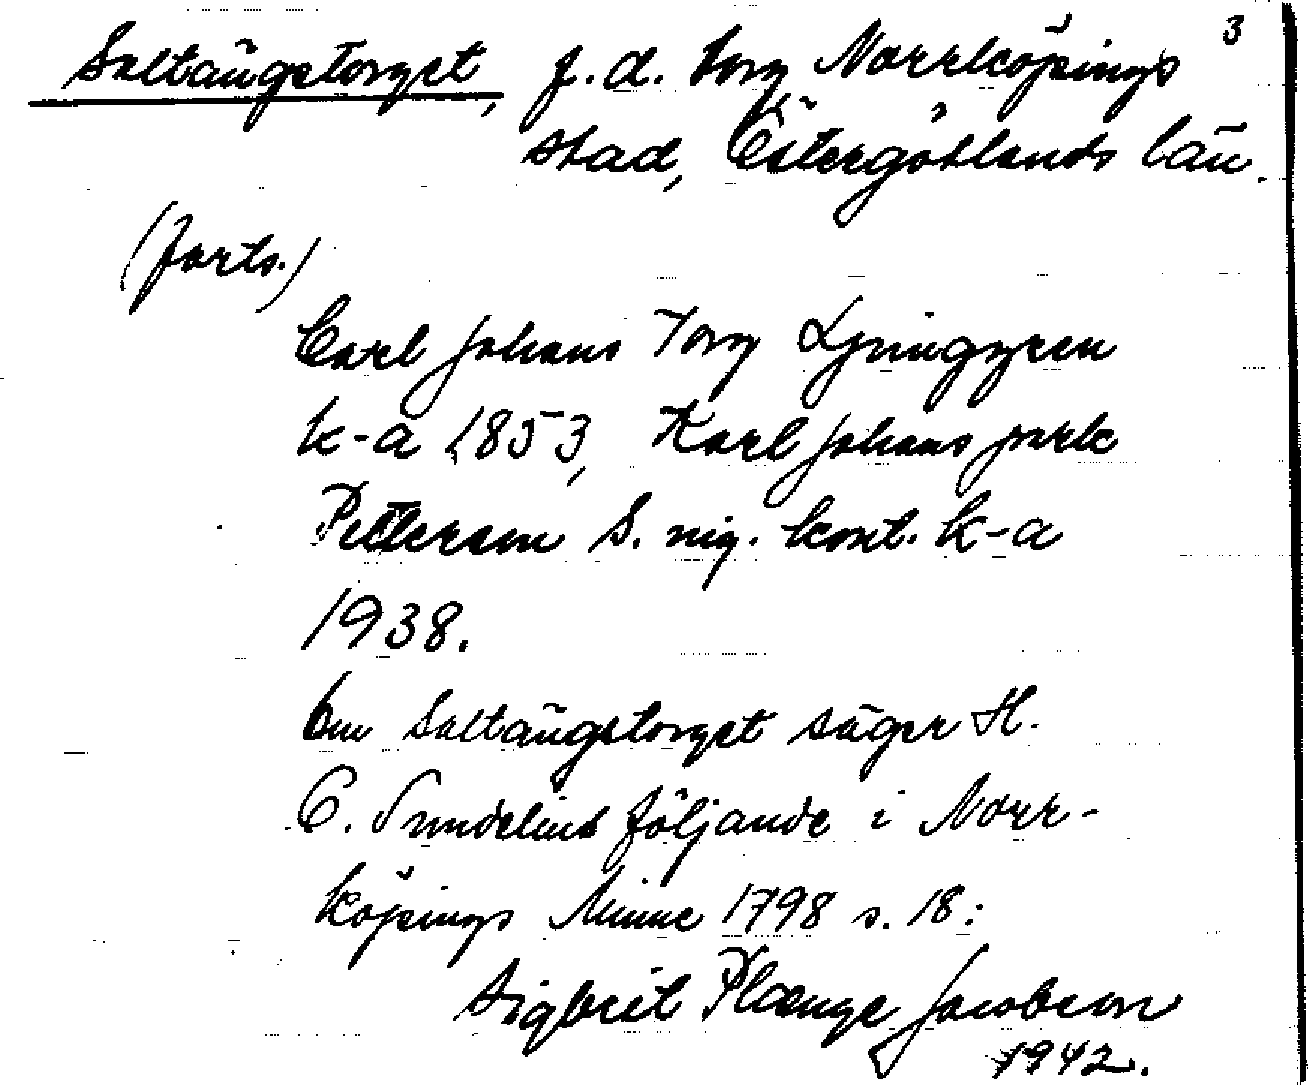 3
Saltängstorget, f.d. torg Norrköpings
stad, Östergötlands län.
(forts.)
Carl Johans Torg Ljunggren
k-a 1853, Karl Johans park
Petterson S. nig. kont. k-a
1938.
Om Saltängstorget säger H.
C. Sundelius följande i Norr-
köpings Minne 1798 s. 18:
Sigbrit Plænge Jacobson
1942.